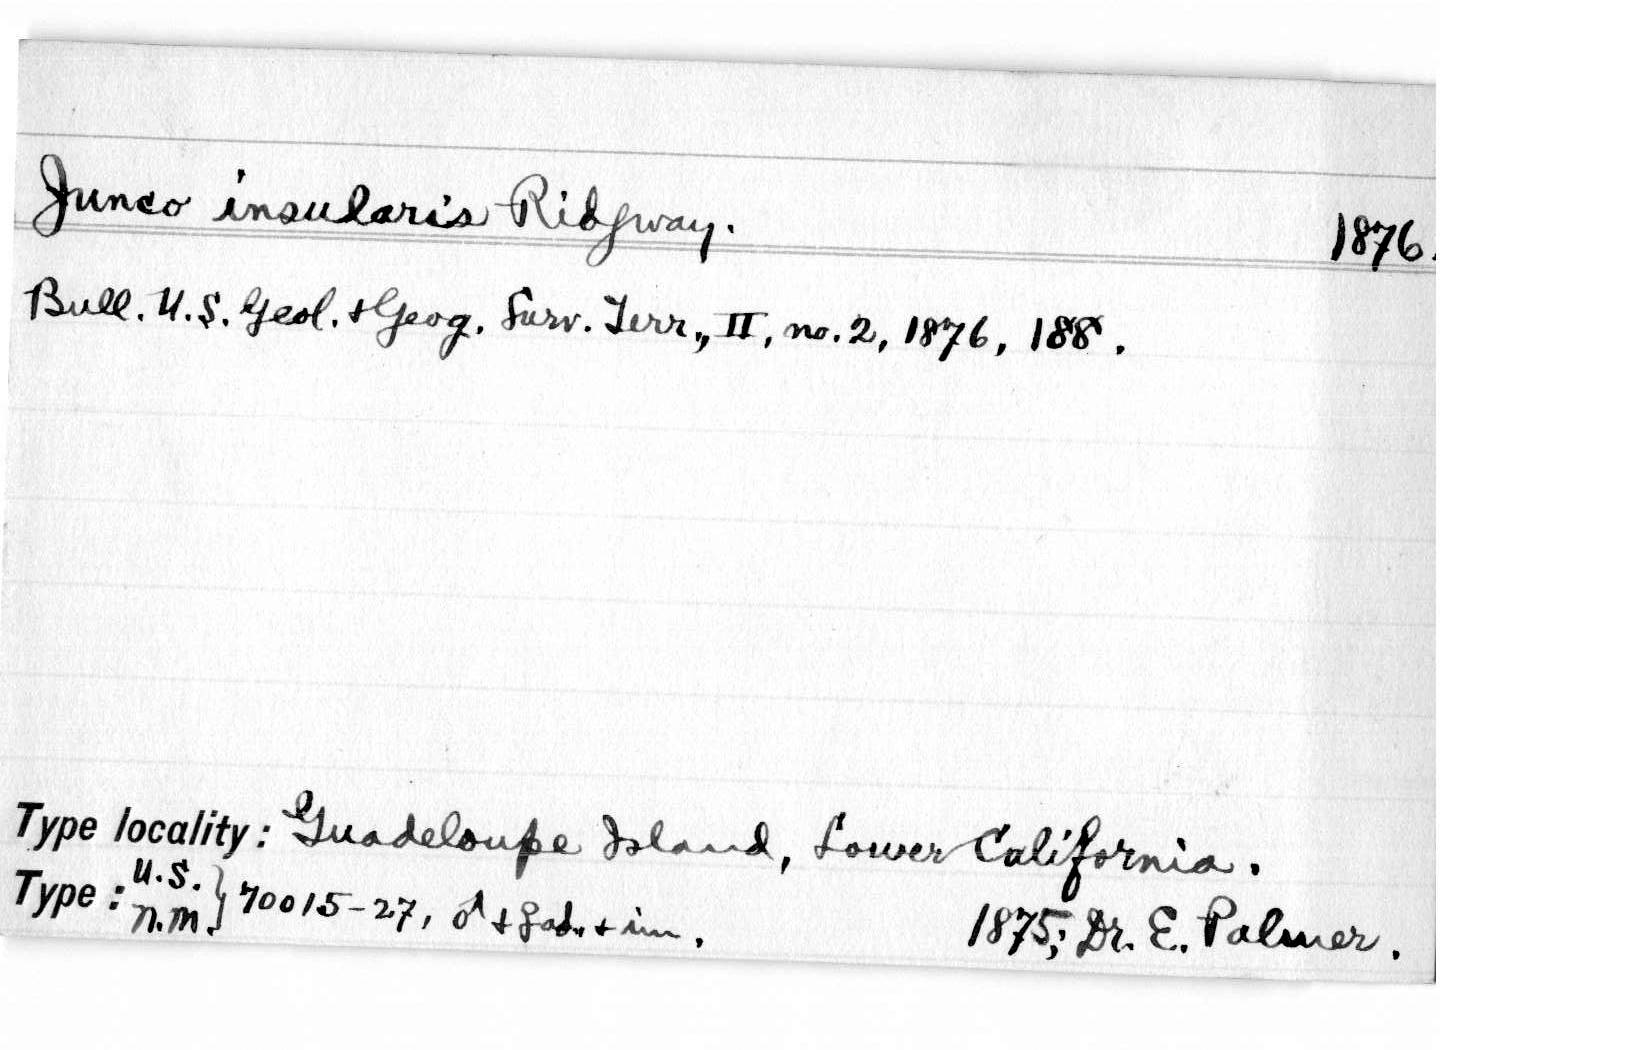 Junco insularis Ridgway. 1876.
Bull. U.S. Geol. & Geog. Surv. Terr., II, no. 2, 1876, 188.
Type locality: Guadeloupe Island, Lower California.
Type: U.S. N.M. } 70015-27, ♂ + ♀ ad. + im. 1875; Dr. E. Palmer.